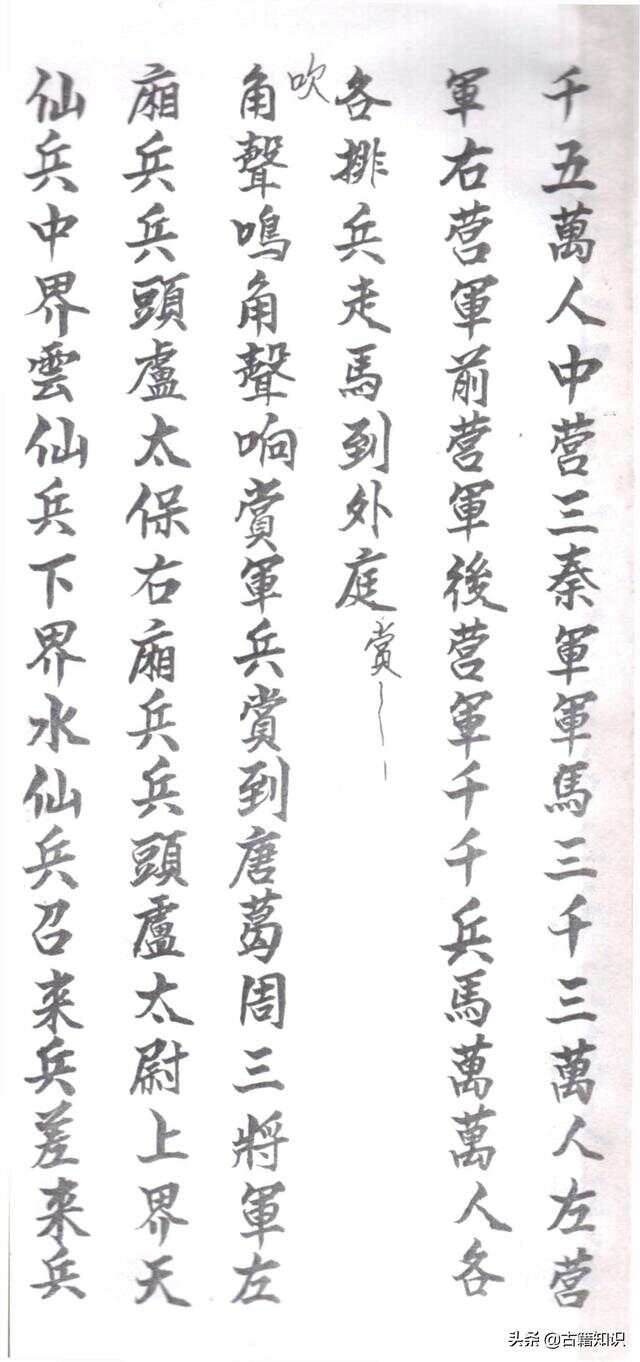 千五萬人中营三秦軍軍馬三千三萬人左营
軍右营軍前营軍後营軍千千兵馬萬萬人各
各排兵走馬到外庭
賞
吹
角聲鳴角聲响賞軍兵賞到唐葛周三將軍左
廂兵兵頭盧太保右廂兵兵頭盧太尉上界天
仙兵中界雲仙兵下界水仙兵召来兵差来兵
头条 @古籍知识